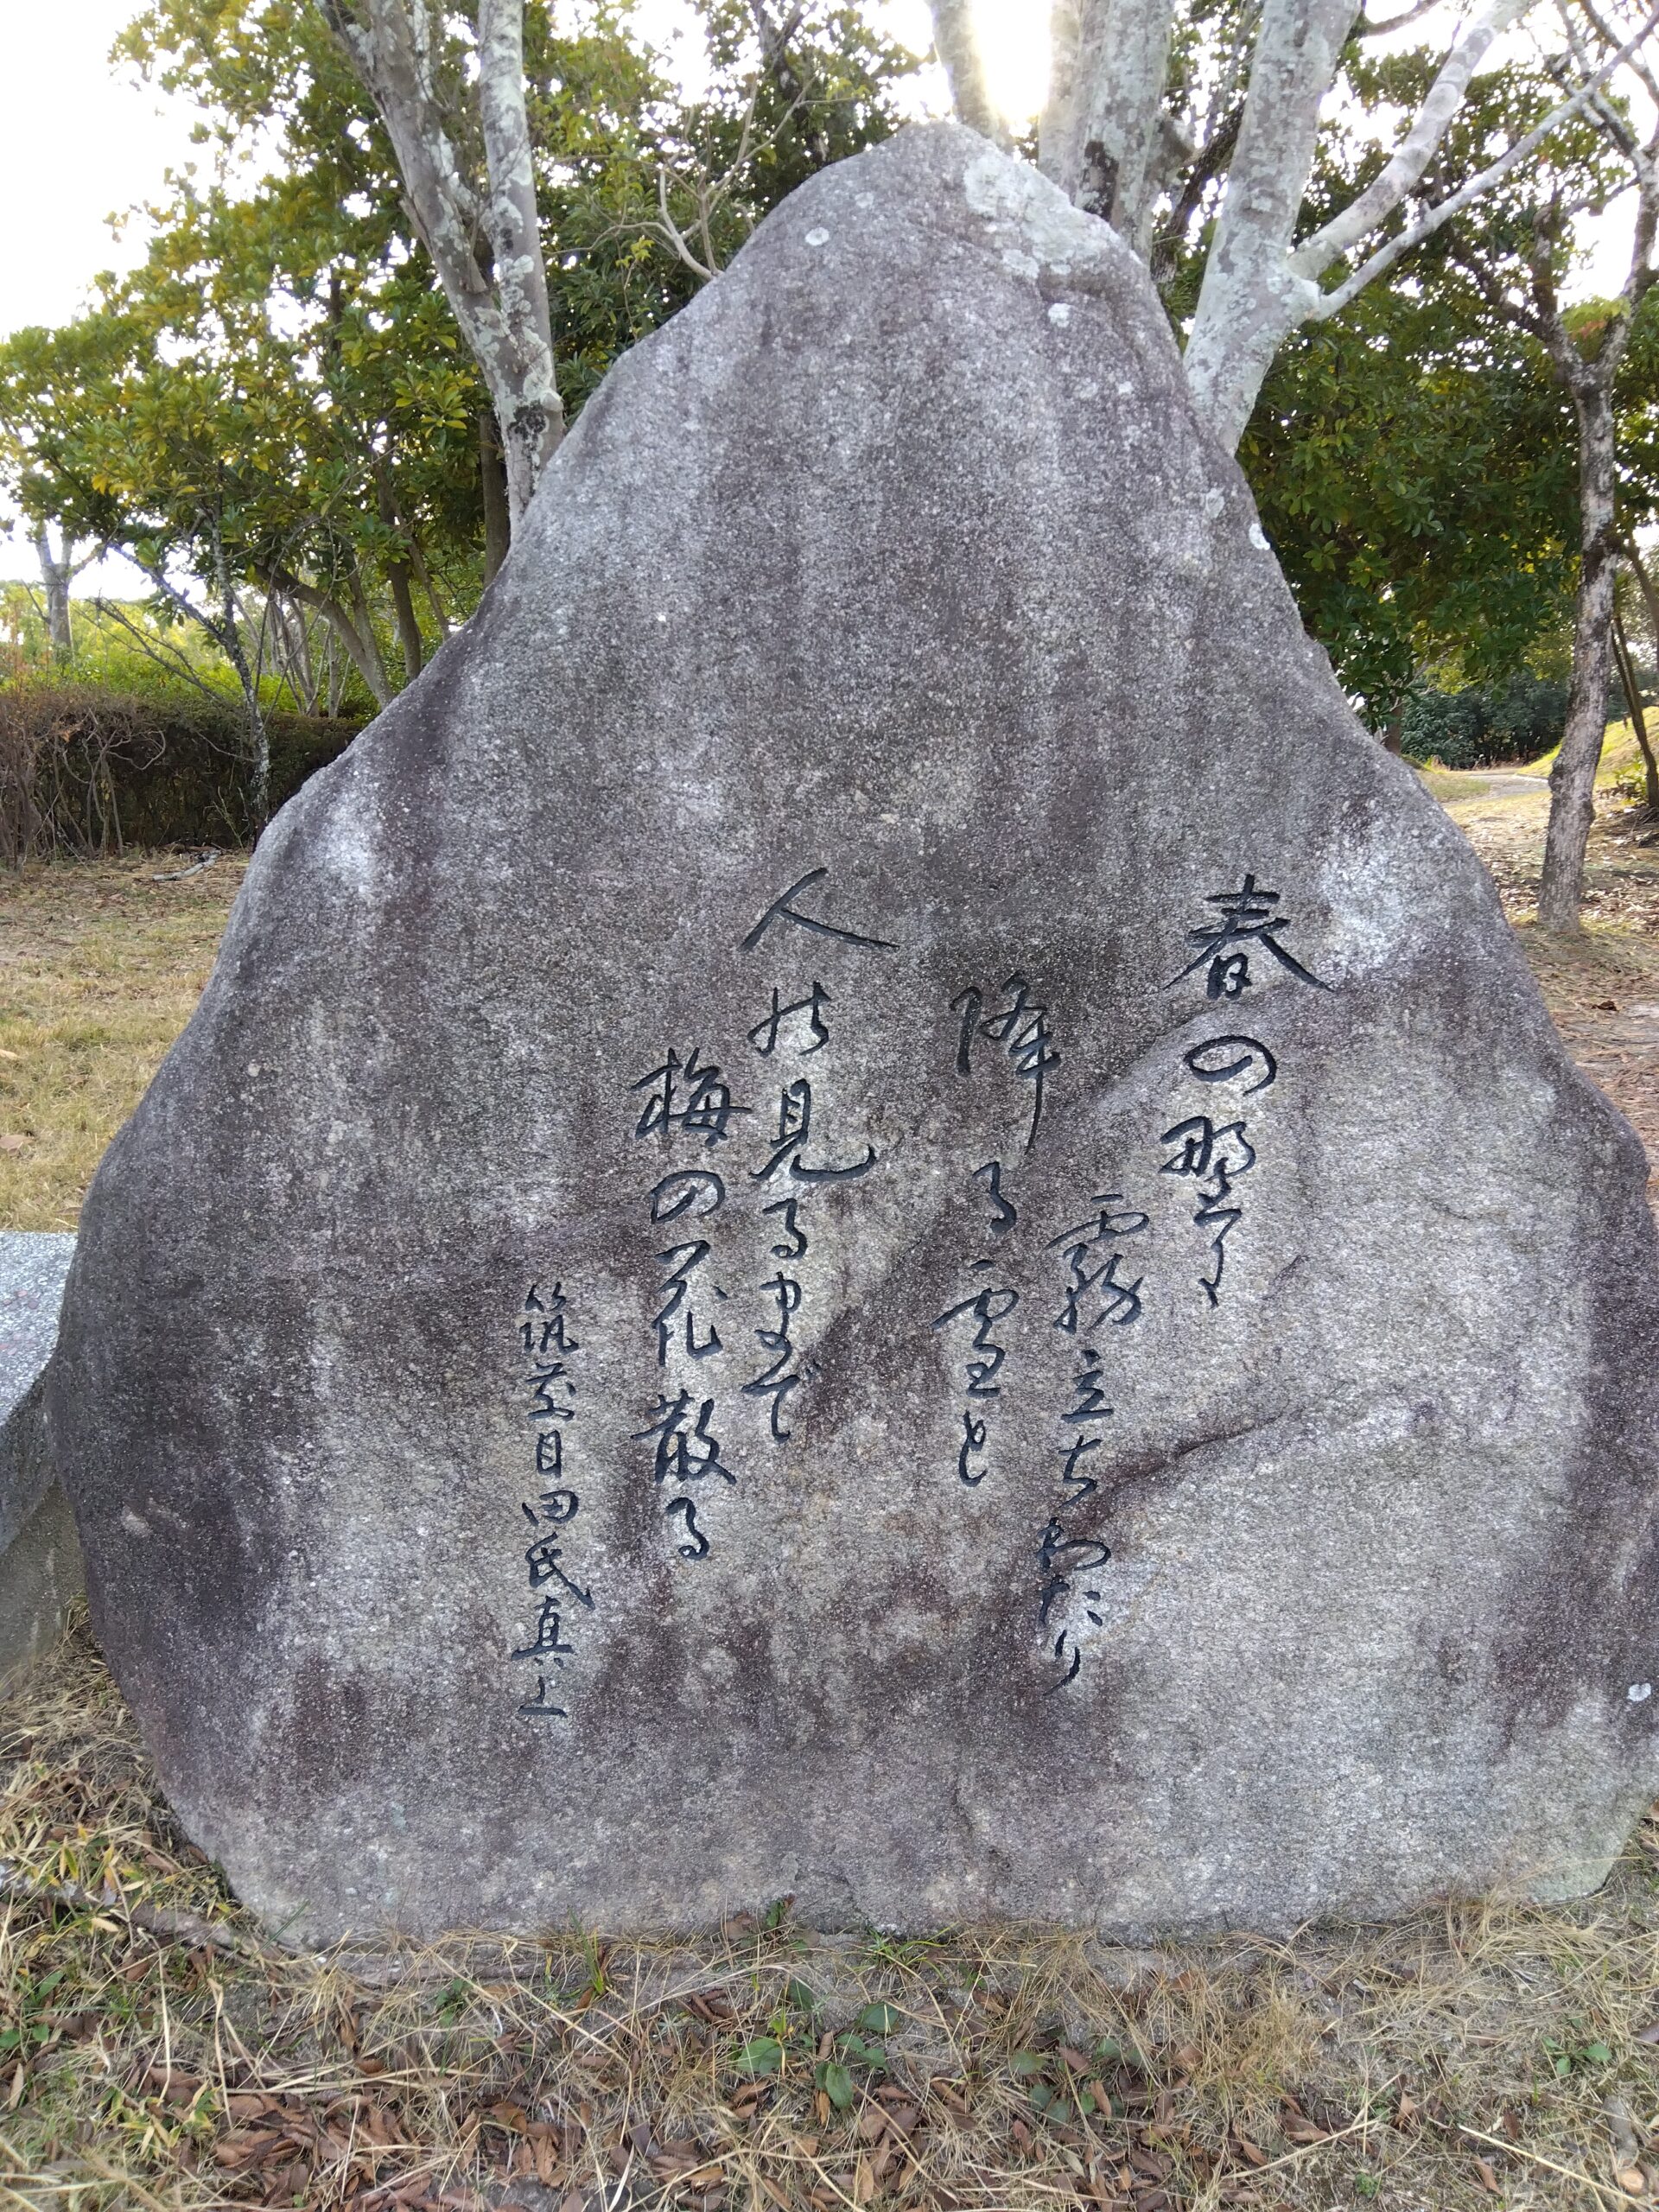 春の野に
霧立ちわたり
降る雪と
人の見るまで
梅の花散る
筑前目田氏真上